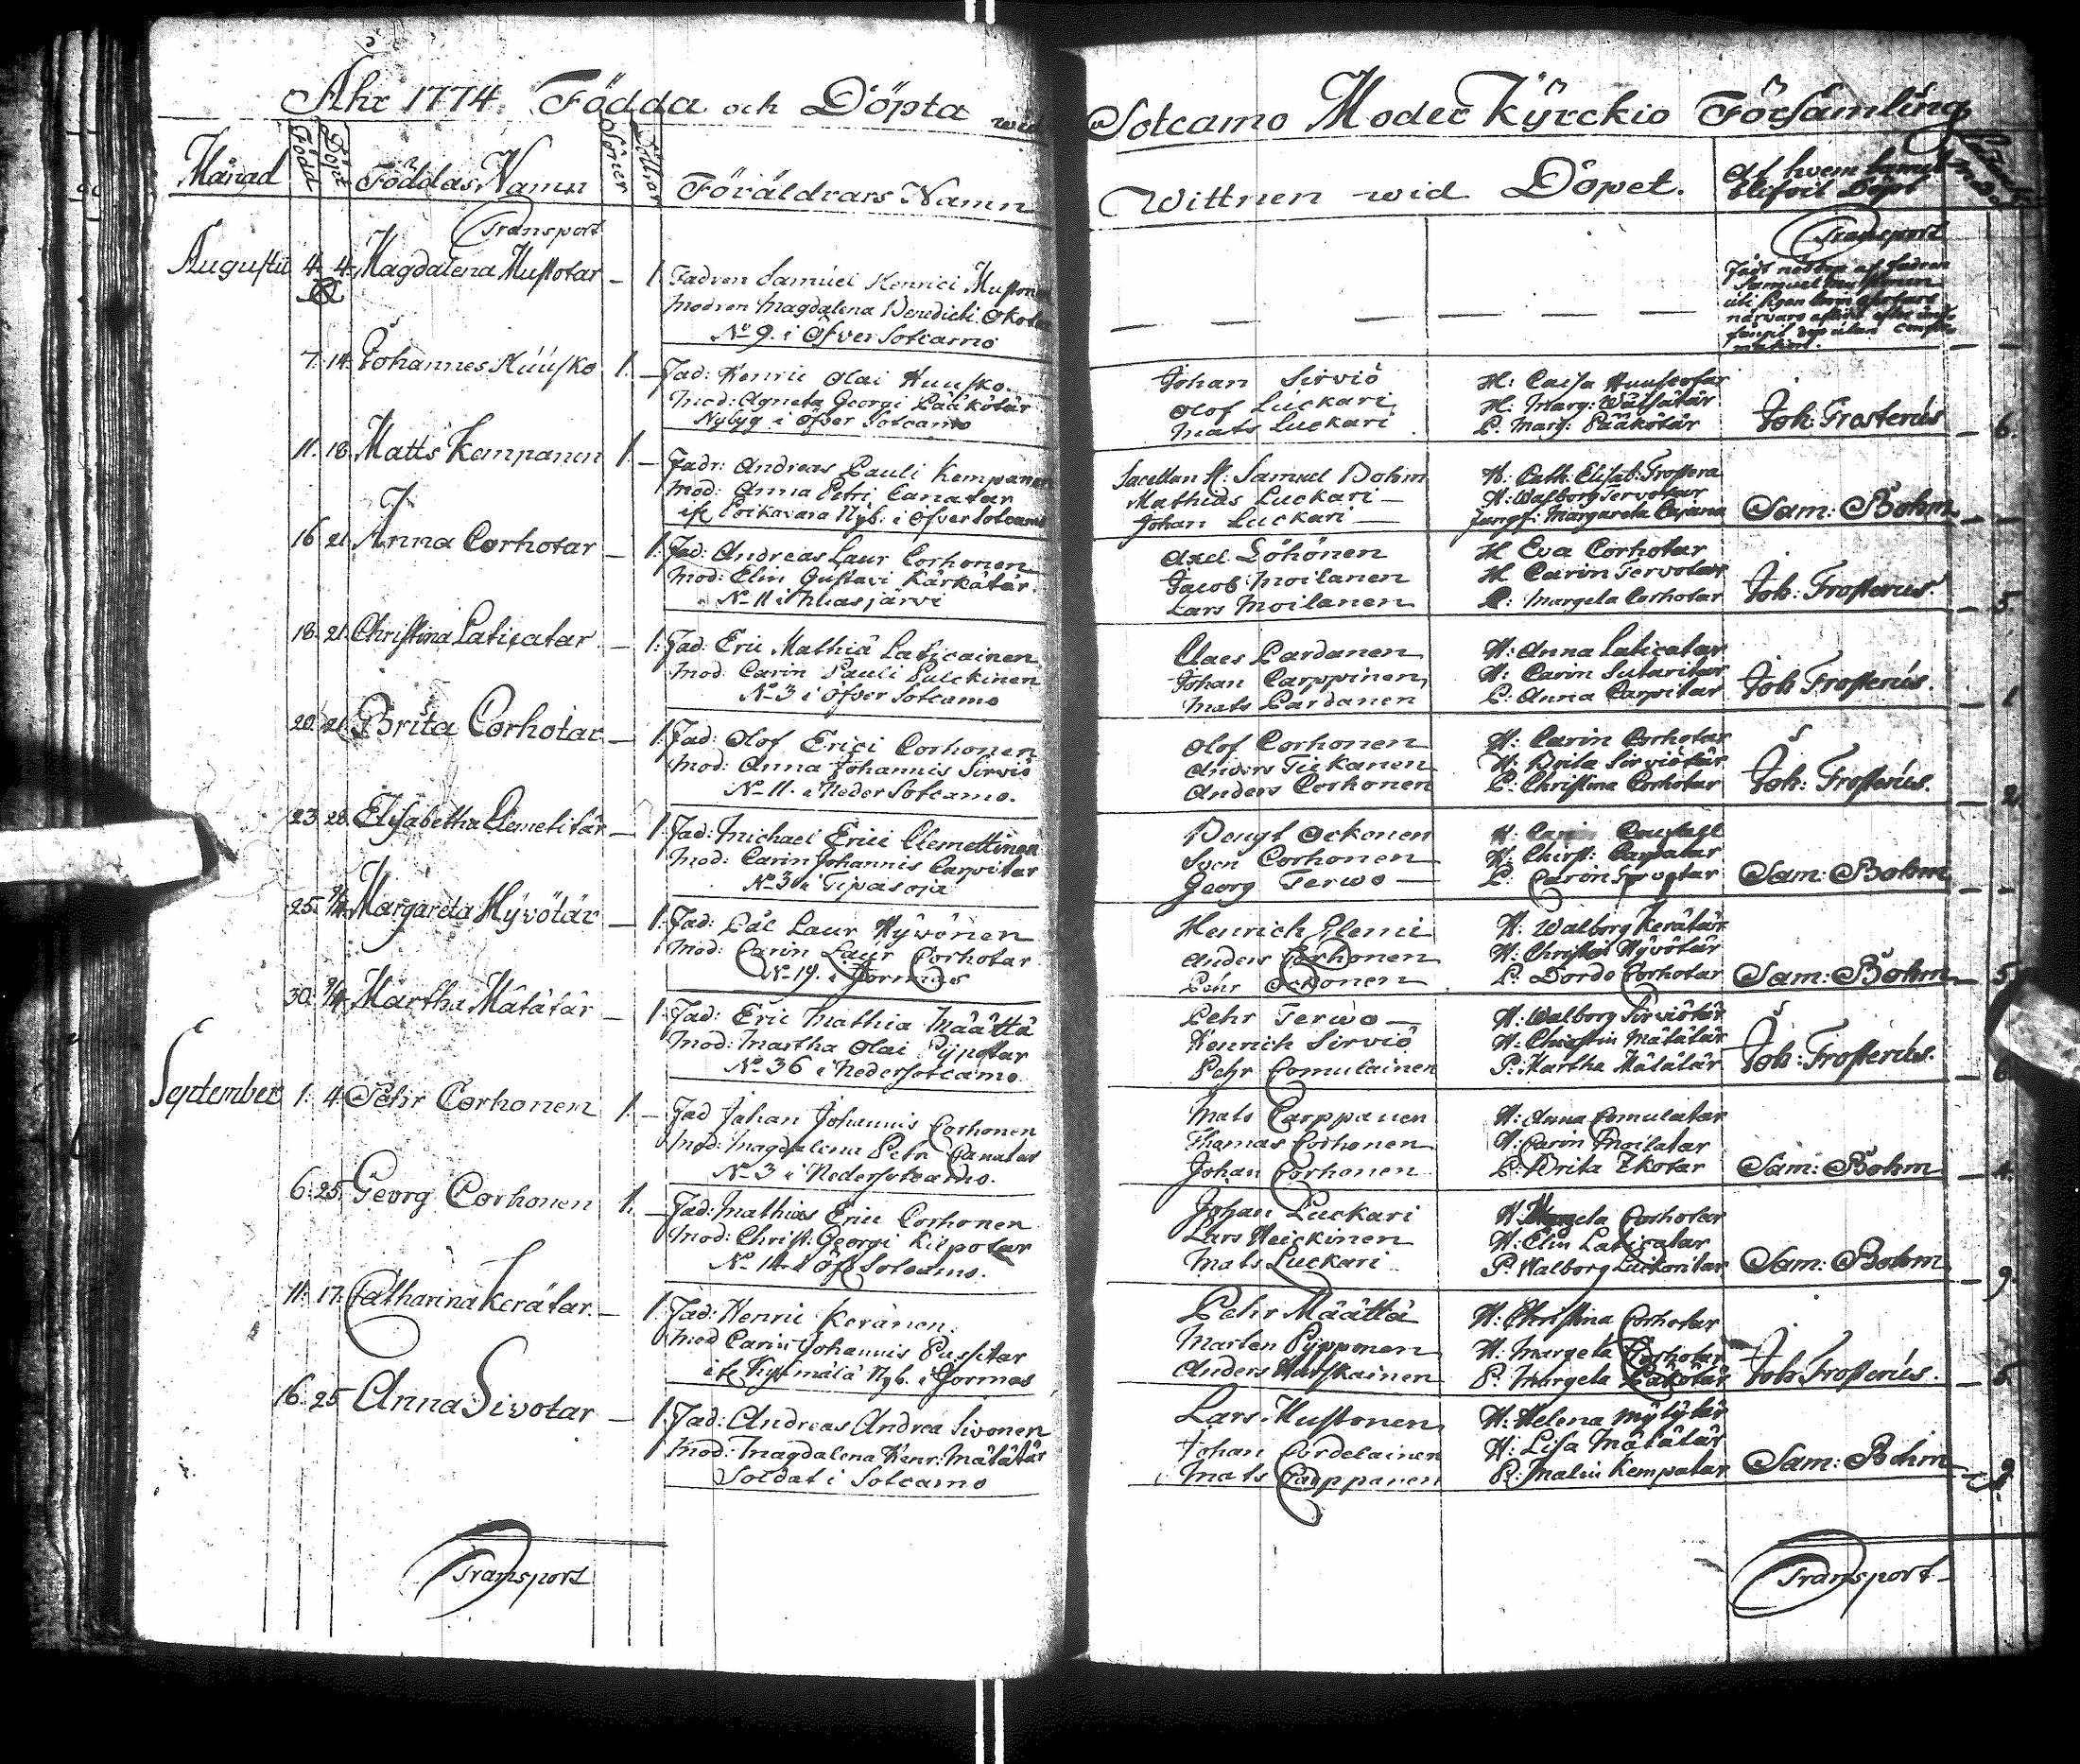 Åhr 1774. Födda och Döpta wid
Sotcamo Moder Kÿrckio Församling
Månad Född Döpt Föddas Namn Söner Döttrar Föräldrars Namn
Wittnen wid Döpet. af hwem
Transport
Transport
Augusti 4. 4. Magdalena Mustotar – 1. Fadren Samuel Henrici Mustonen
Modren Magdalena Benedicti Ockotar
No 9. i Öfver Sotcamo
7. 14. Johannes Huusko 1. – Fad: Henric Olai Huusko.
Mod: Agneta Georgi Pääkötär
Nybyg i Öfver Sotcamo
Johan Sirviö H: Caisa Huuscotar
Olof Luckari H: Marg: Wätsätär
Mats Luckari P. Marg: Pääkötär Joh: Frosterus – 6.
11. 18. Matts Kempanen 1. – Fadr: Andreas Pauli Kempanen
Mod: Anna Petri Canatar
Poikavara Nyb: i Öfver Sotcamo
Sacellan H: Samuel Bohm H: Cath: Elisab: Frostera
Mathias Luckari – H: Walborg Tervotar
Johan Luckari – Jungf: Margareta Cajana Sam: Bohm – –
16. 21. Anna Corhotar – 1. Fad: Andreas Laur Corhonen
Mod: Elin Gustavi Kärkätär.
No 11 i
Axel Löhönen H Eva Corhotar
Jacob Moilanen H Carin Tervotar
Lars Moilanen P: Margeta Corhotar Joh: Frosterus. – 5.
18. 21. Christina Laticatar – 1. Fad: Eric Mathiä Laticainen
Mod: Carin Pauli Pulckinen
No 3 i Öfver Sotcamo
Claes Pardanen H: Anna Laticatar
Johan Carppinen H: Carin Sutaritar
Mats Pardanen P: Anna Carpitar Joh Frosterus. – 1
20. 21. Brita Corhotar – 1. Fad: Olof Erici Corhonen
Mod: Anna Johannis Sirviö
No 11. i Neder Sotcamo.
Olof Corhonen H: Carin Corhotar
Anders Tickanen H: Brita Sirviötär
Anders Corhonen P: Christina Corhotar Joh: Frosterus. – 2.
23. 28. Elisabetha Clemetitär – 1. Fad: Michael Erici Clemettinen
Mod: Carin Johannis Carpitar
No 30 i Tipasoja
Bengt Ockonen H:
Sven Corhonen H: Christ: Carpatar
Georg Terwo – P: Carin Tervotar Sam: Bohm – –
25. Margareta Hÿvötär – 1. Fad: Pål Laur Hÿvönen
Mod: Carin Laur Corhotar
No 19. i Jormas
Henrich Clemi H: Walborg Kerätär
Anders Corhonen H: Christin Hÿvötär
Pehr Ockonen P: Dordo Corhotar Sam: Bohm – 5.
30. Martha Mätätär – 1. Fad: Eric Mathia Määttä
Mod: Martha Olai Pÿpotar
No 36 i Neder Sotcamo.
Pehr Terwo – H: Walborg Sirviötär
Henrich Sirviö H: Christin Mätätär
Pehr Comulainen P: Martha Mätätär Joh: Frosterus. – 6
September 1. 4. Pehr Corhonen 1. – Fad Johan Johannis Corhonen
Mod: Magdalena Petri Canatar
No 3 i Neder Sotcamo.
Mats Carppanen H: Anna Comulatar
Thomas Corhonen H: Carin Moilatar
Johan Corhonen P: Brita Ikotar Sam: Bohm – 4.
6. 25. Georg Corhonen 1. – Fad: Mathias Erici Corhonen
Mod: Christ: Georgi Kilpotar
No 14 i Öfr Sotcamo.
Johan Luckari H: Margeta Corhotar
Lars Heickinen H: Elin Laticatar
Mats Luckari P: Walborg Luckaritar Sam: Bohm – 9.
11. 17. Catharina Kerätar. – 1. Fad: Henric Keränen.
Mod Carin Johannis Pussitar
Nyb. i Jormas
Pehr Määttä H: Christina Corhotar
Marten Pÿpponen H: Margeta Corhotar
Anders Hurskainen P: Margeta Läkötär Joh: Frosterus. – 5.
16. 25. Anna Sivotar – 1. Fad: Andreas Andrea Sivonen
Mod: Magdalena Henr: Mätätär
Soldat i Sotcamo
Lars Mustonen H: Helena Mÿlÿtär
Johan Cordelainen H: Lisa Mätätär
Mats Carppanen P: Malin Kempatar Sam: Bohm – 9.
Transport
Transport